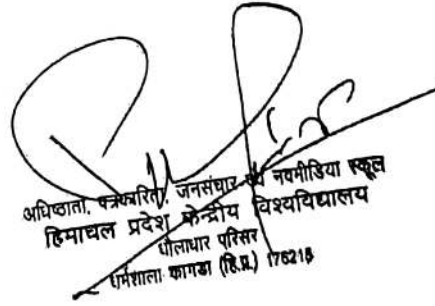 अधिष्ठाता, पत्रकारिता, जनसंचार एवं नवमीडिया स्कूल
हिमाचल प्रदेश केन्द्रीय विश्वविद्यालय
धौलाधार परिसर
धर्मशाला कागडा (हि.प्र.) 176215